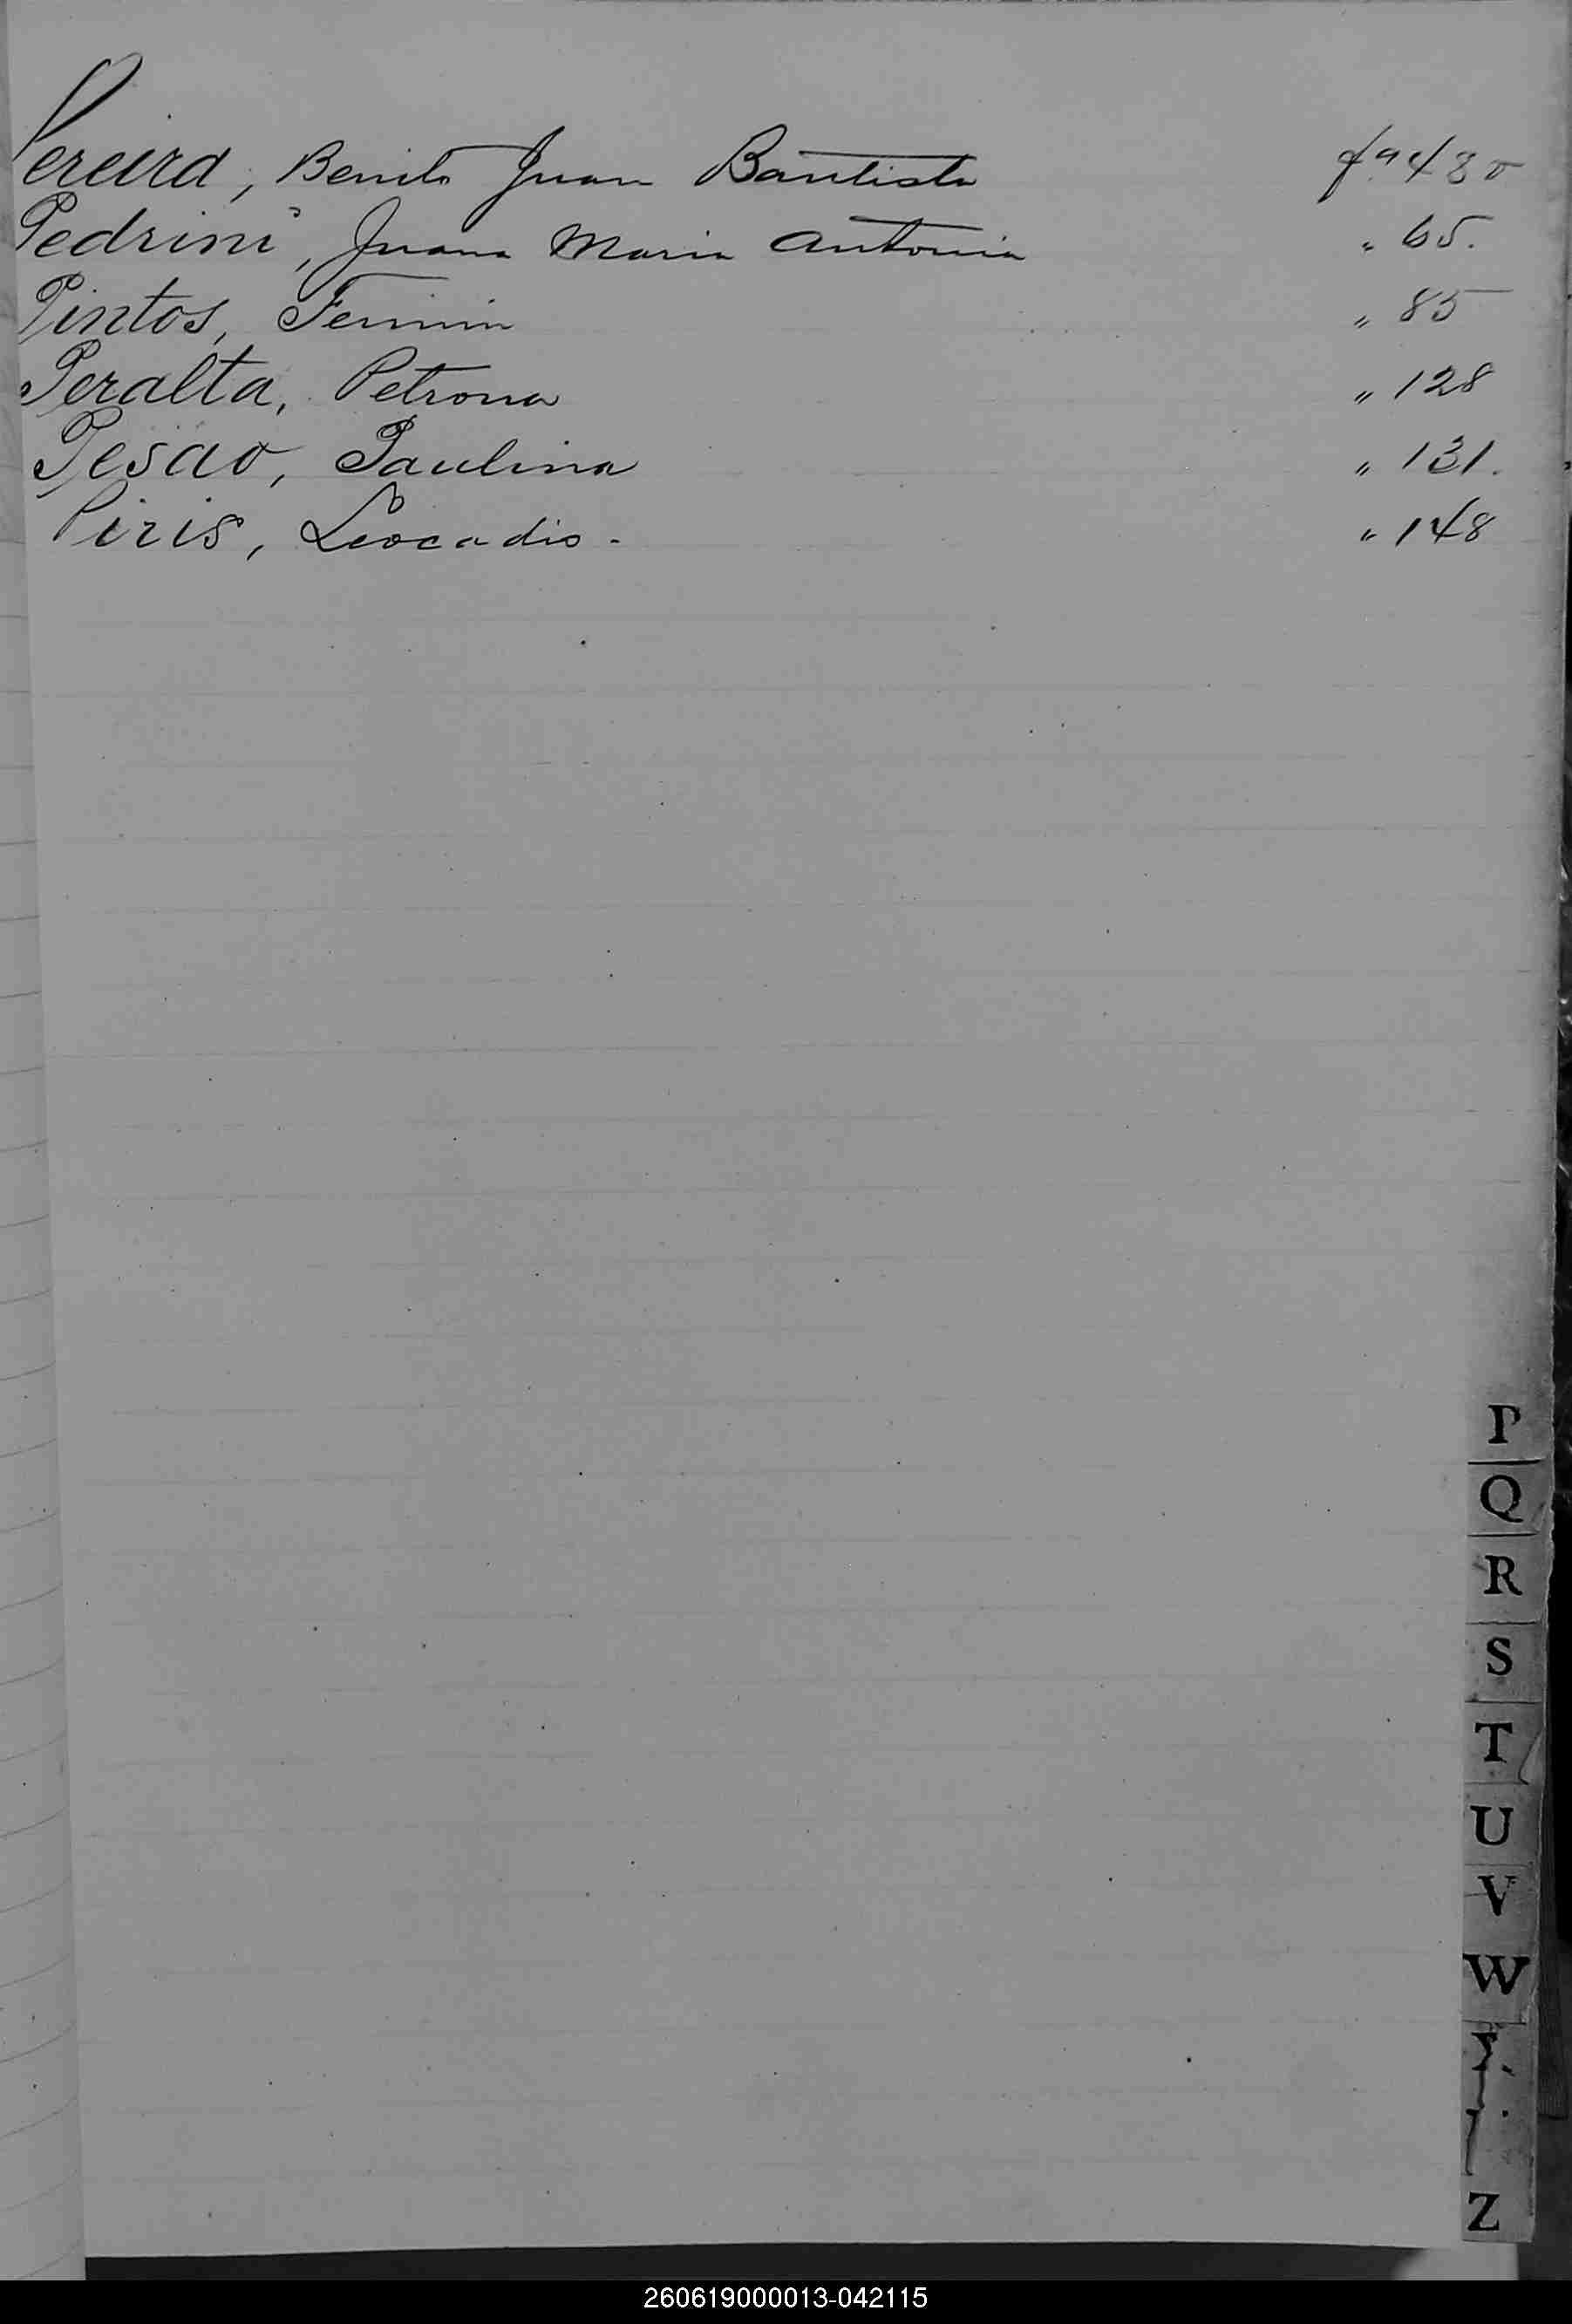 Pereira, Benito Juan Bautista fª 480
Pedrini, Juana Maria Antonia " 65.
Pintos, Fermin " 85
Peralta, Petrona " 128
Pesao, Paulina " 131.
Piris, Leocadio. " 148
P
Q
R
S
T
U
V
W
Z
260619000013-042115